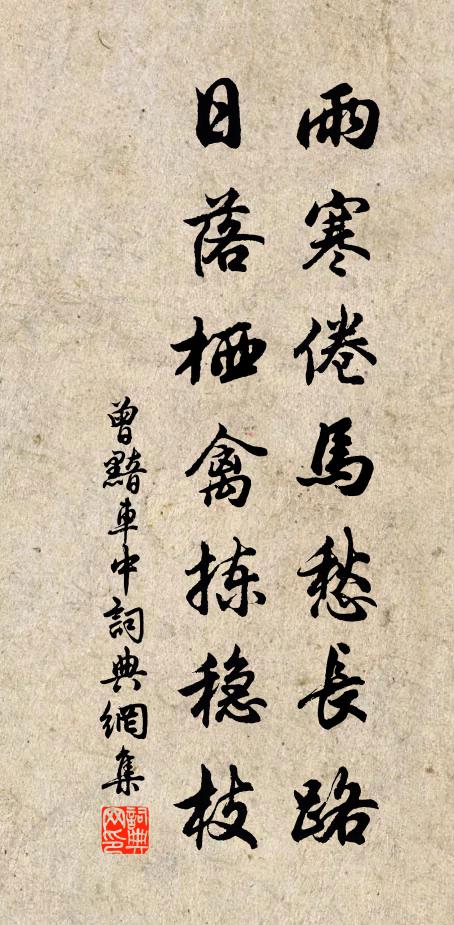 雨寒倦馬愁長路
日落栖禽拣穏枝
曾黯車中詞典網集
詞典網印